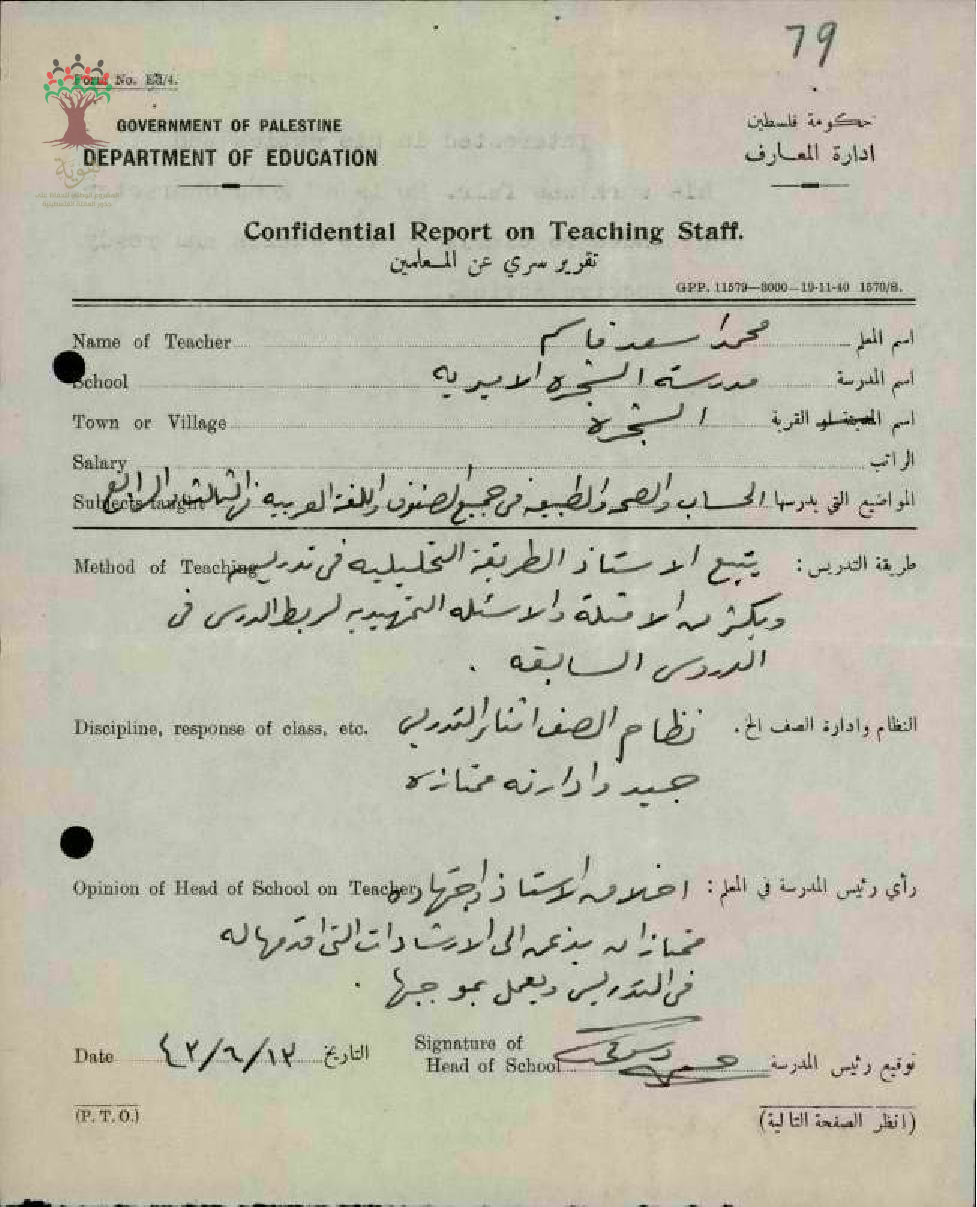 79
Form No. E3/4.
GOVERNMENT OF PALESTINE
حكومة فلسطين
DEPARTMENT OF EDUCATION
ادارة المعارف
Confidential Report on Teaching Staff.
تقرير سري عن المعلمين
GPP. 11579—3000—19-11-40 1570/8.
Name of Teacher محمد اسعد قاسم اسم المعلم
School مدرسة الشجره الاميريه اسم المدرسة
Town or Village الشجرة اسم القرية
Salary الراتب
Subjects taught الحساب والصحه والطبيعه في جميع الصفوف واللغة العربيه في الثالث والرابع المواضيع التي يدرسها
Method of Teaching يتبع الاستاذ الطريقة التحليليه في تدريسه طريقة التدريس :
ويكثر من الامثلة والاسئله التمهيديه لربط الدرس في
الدروس السابقه .
Discipline, response of class, etc. نظام الصف اثناء التدريس النظام وادارة الصف الخ.
جيد وادارته ممتازة
Opinion of Head of School on Teacher اخلاق الاستاذ واجتهاده رأي رئيس المدرسة في المعلم :
ممتازان يذعن الى الارشادات التي اقدمها له
في التدريس ويعمل بموجبها .
Date ١٣/٦/٤٢ التاريخ Signature of
Head of School توقيع رئيس المدرسة
(P. T. O.) (انظر الصفحة التالية)